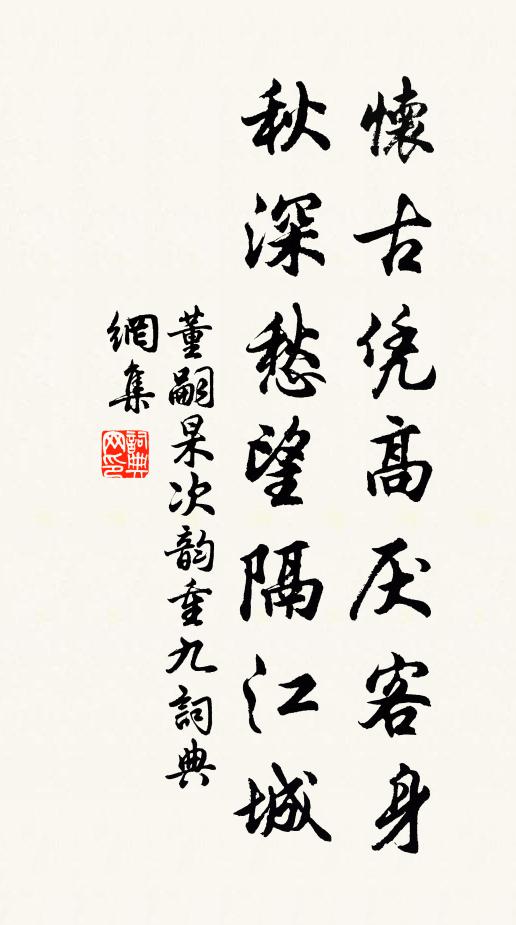 懷古凭高厌客身
秋深愁望隔江城
董嗣杲次韵重九詞典
網集
詞典网印